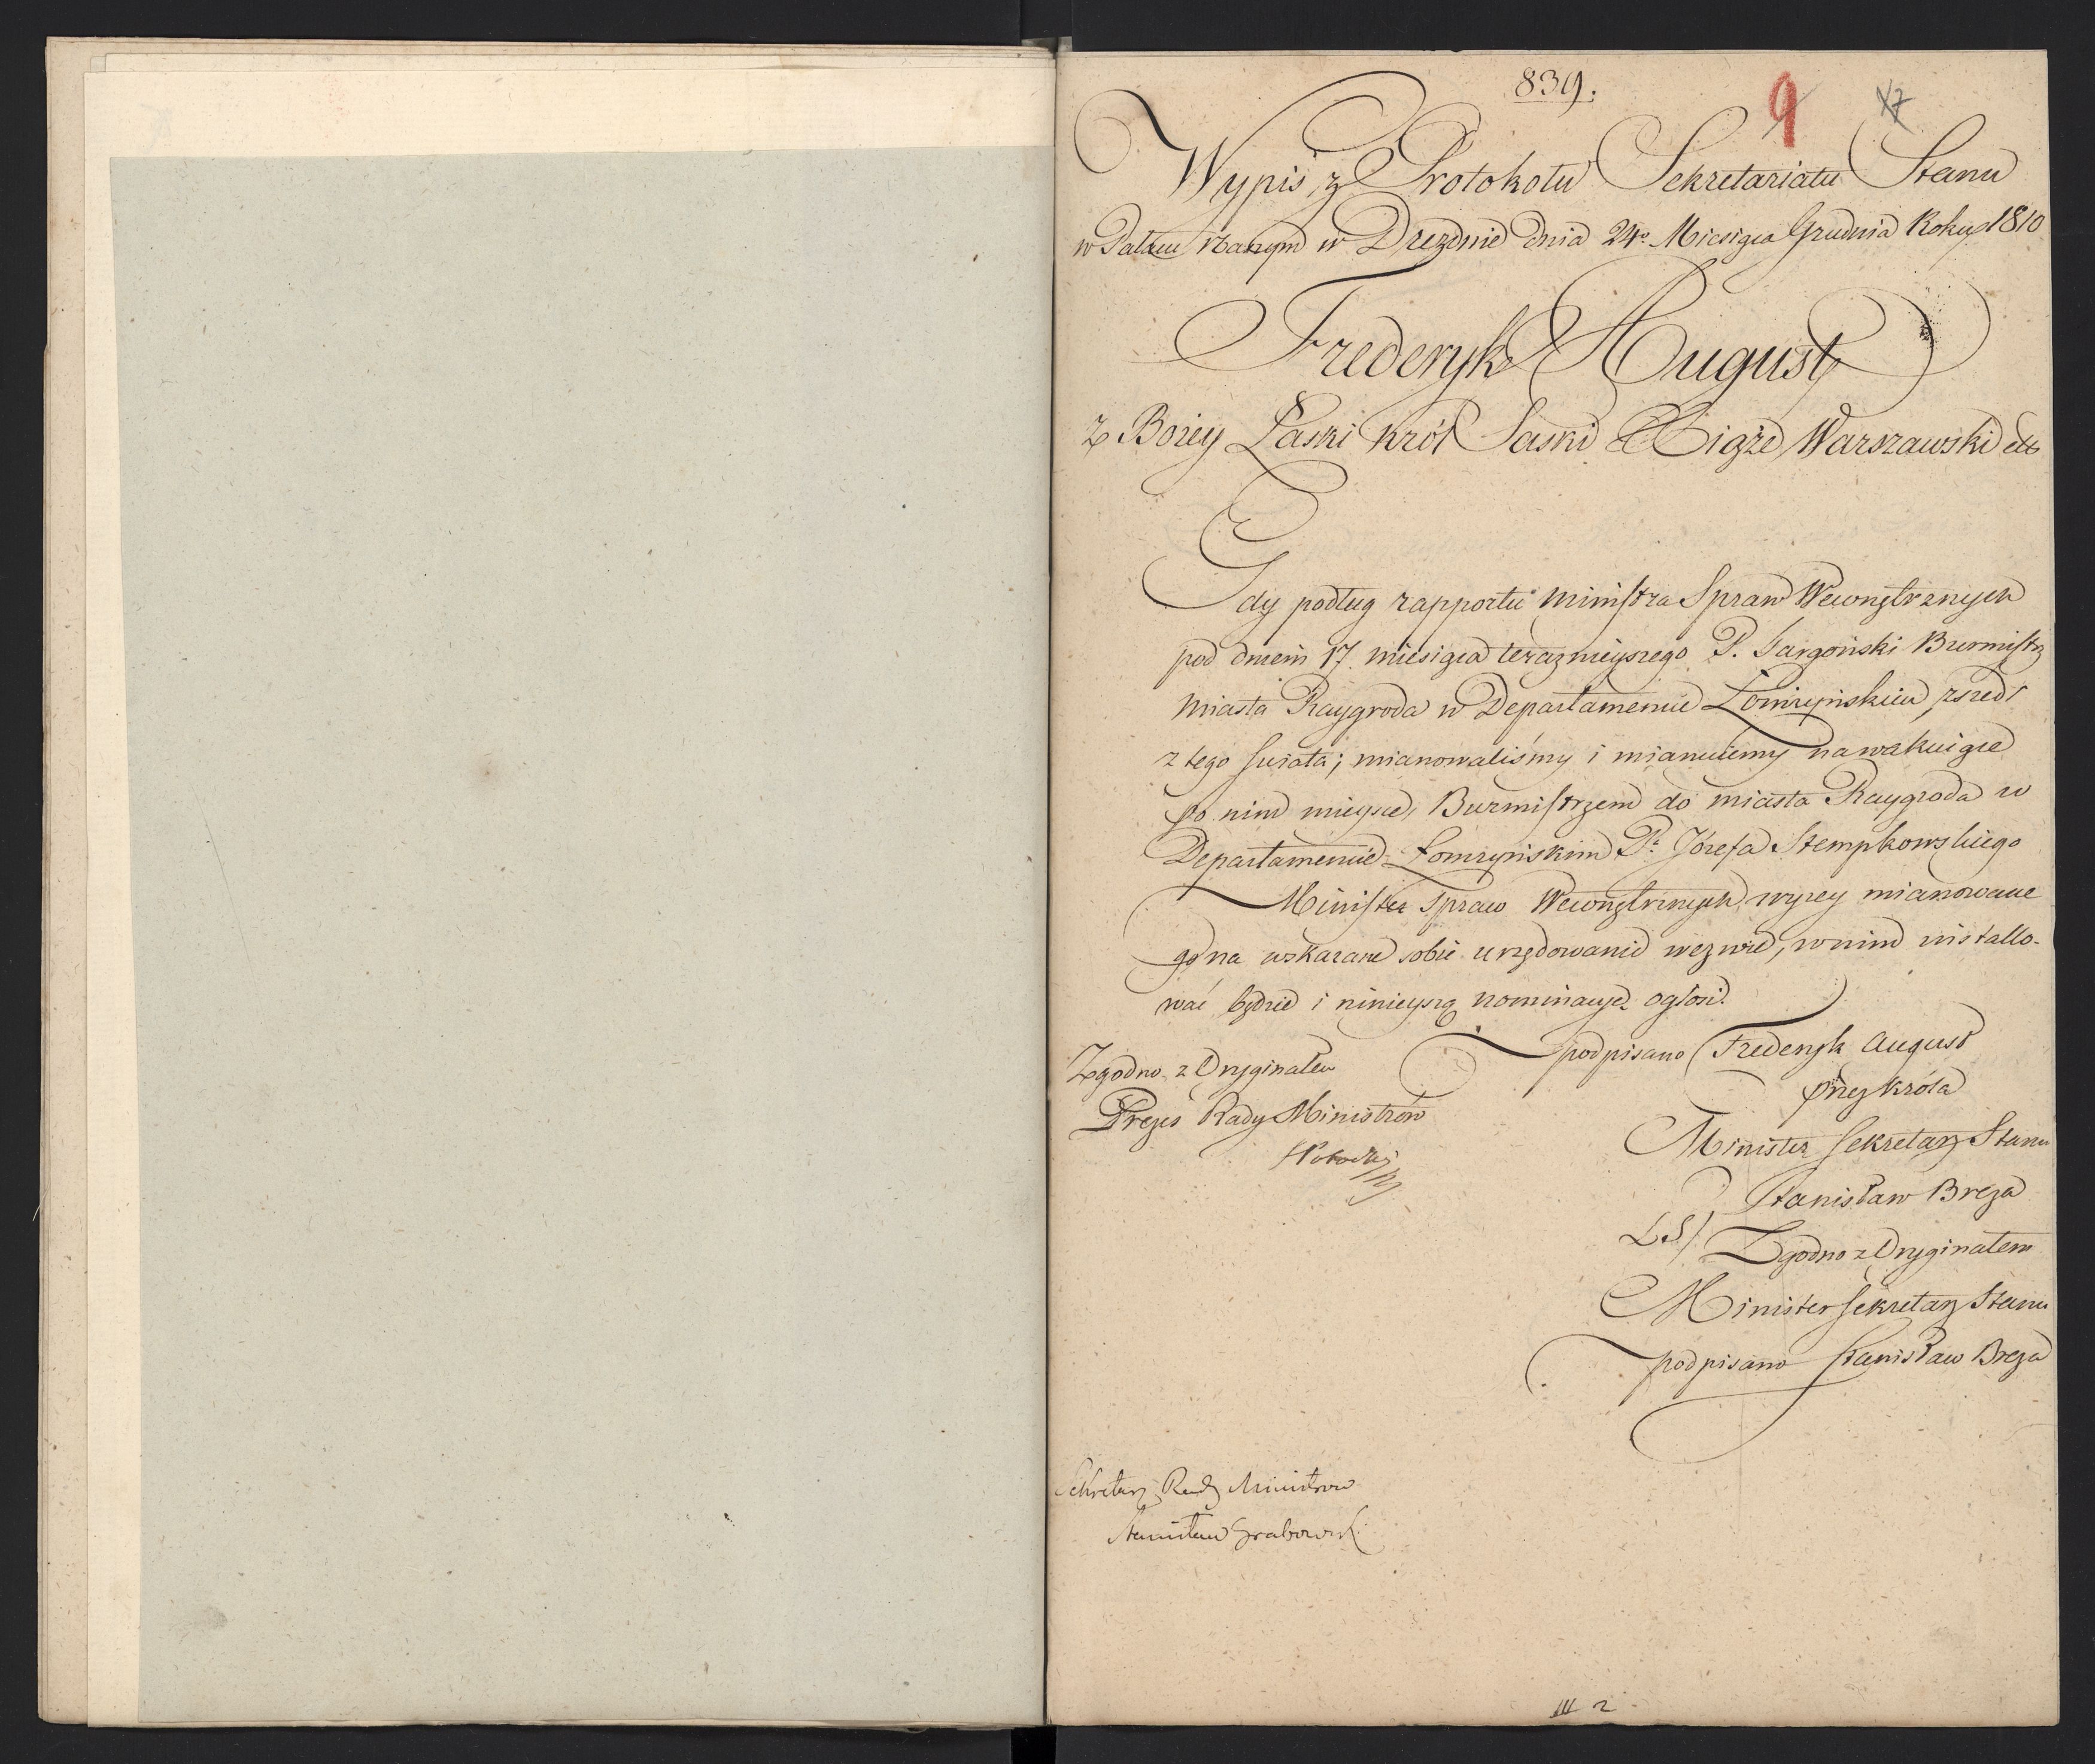 839.
9
17
Wypis z Protokołu Sekretariatu Stanu
w Pałacu naszym w Dreznie dnia 24º Miesiąca Grudnia Roku 1810
Frederyk August
z Bożey Łaski Król Saski Xiąże Warszawski etc
Gdy podług rapportu Ministra Spraw Wewnętrznych
pod dniem 17. miesiąca teraznieyszego P. Gargoński Burmistrz
Miasta Raygroda w Departamencie Łomżyńskim, zszedł
z tego świata; mianowaliśmy i mianuiemy na wakuiące
po nim mieysce, Burmistrzem do miasta Raygroda w
Departamencie Łomżyńskim Pª Józefa Stempkowskiego
Minister Spraw Wewnętrznych wyżey mianowane
go na wskazane sobie urzędowanie wezwie, w nim installo-
wać będzie i ninieyszą nominacyę ogłosi.
podpisano Frederyk August
Zgodno z Oryginałem
przez Króla
Prezes Rady Ministrów
Minister Sekretarz Stanu
SPotocki
Stanisław Breza
LS/
Zgodno z Oryginałem
Minister Sekretarz Stanu
podpisano Stanisław Breza
Sekretarz Rady Ministrow
Stanisław Grabowski